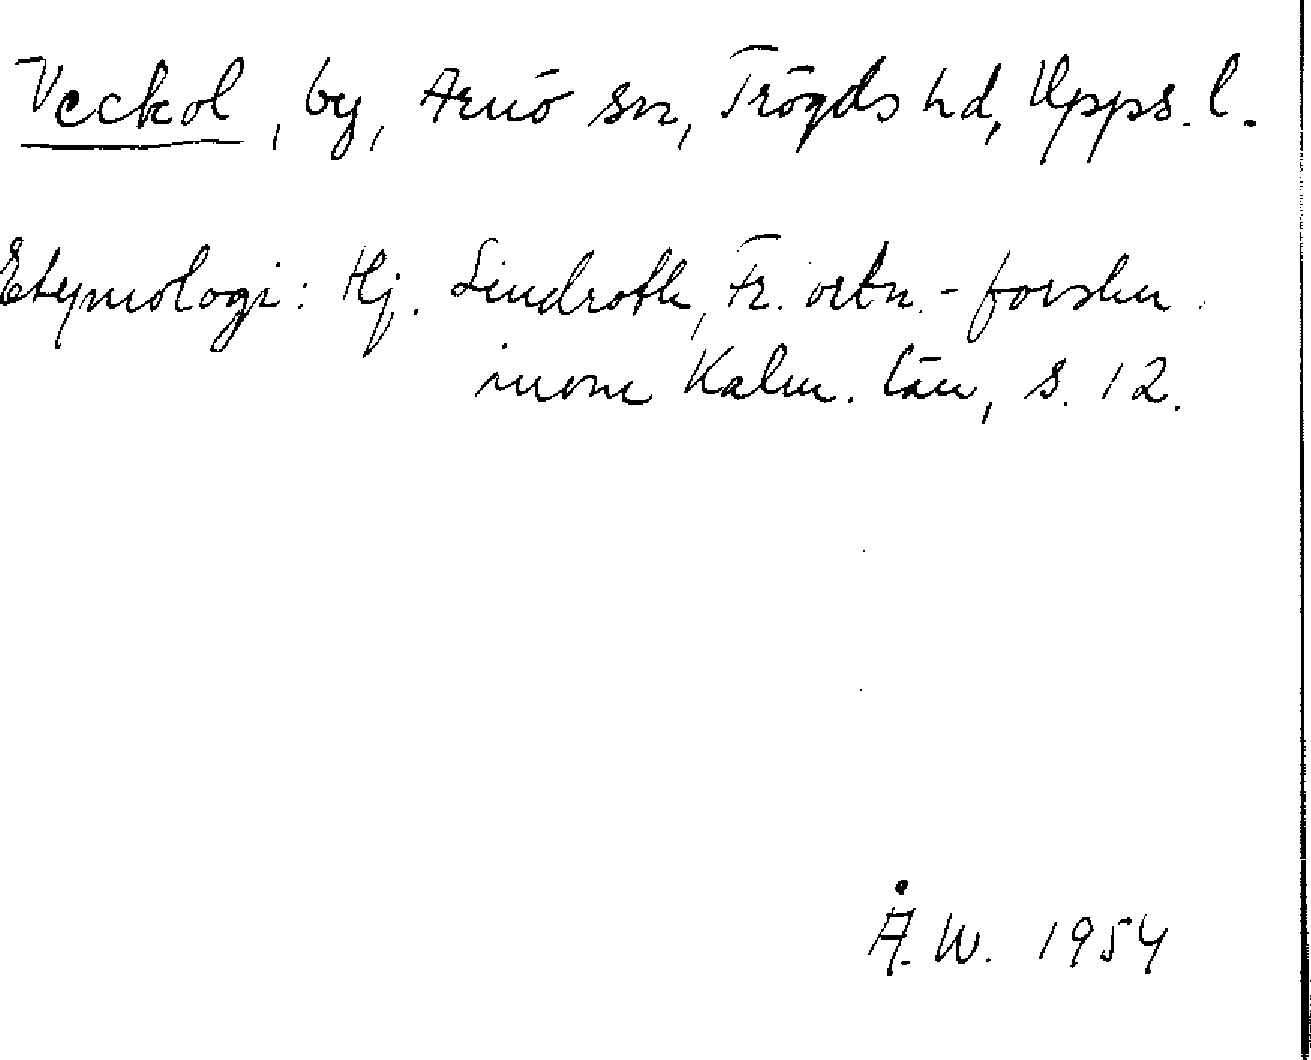 Veckol, by, Arnö sn, Trögds hd, Upps. l.
Etymologi: Hj. Lindroth, Fr. ortn.-forskn.
inom Kalm. län, s. 12.
Å.W. 1954